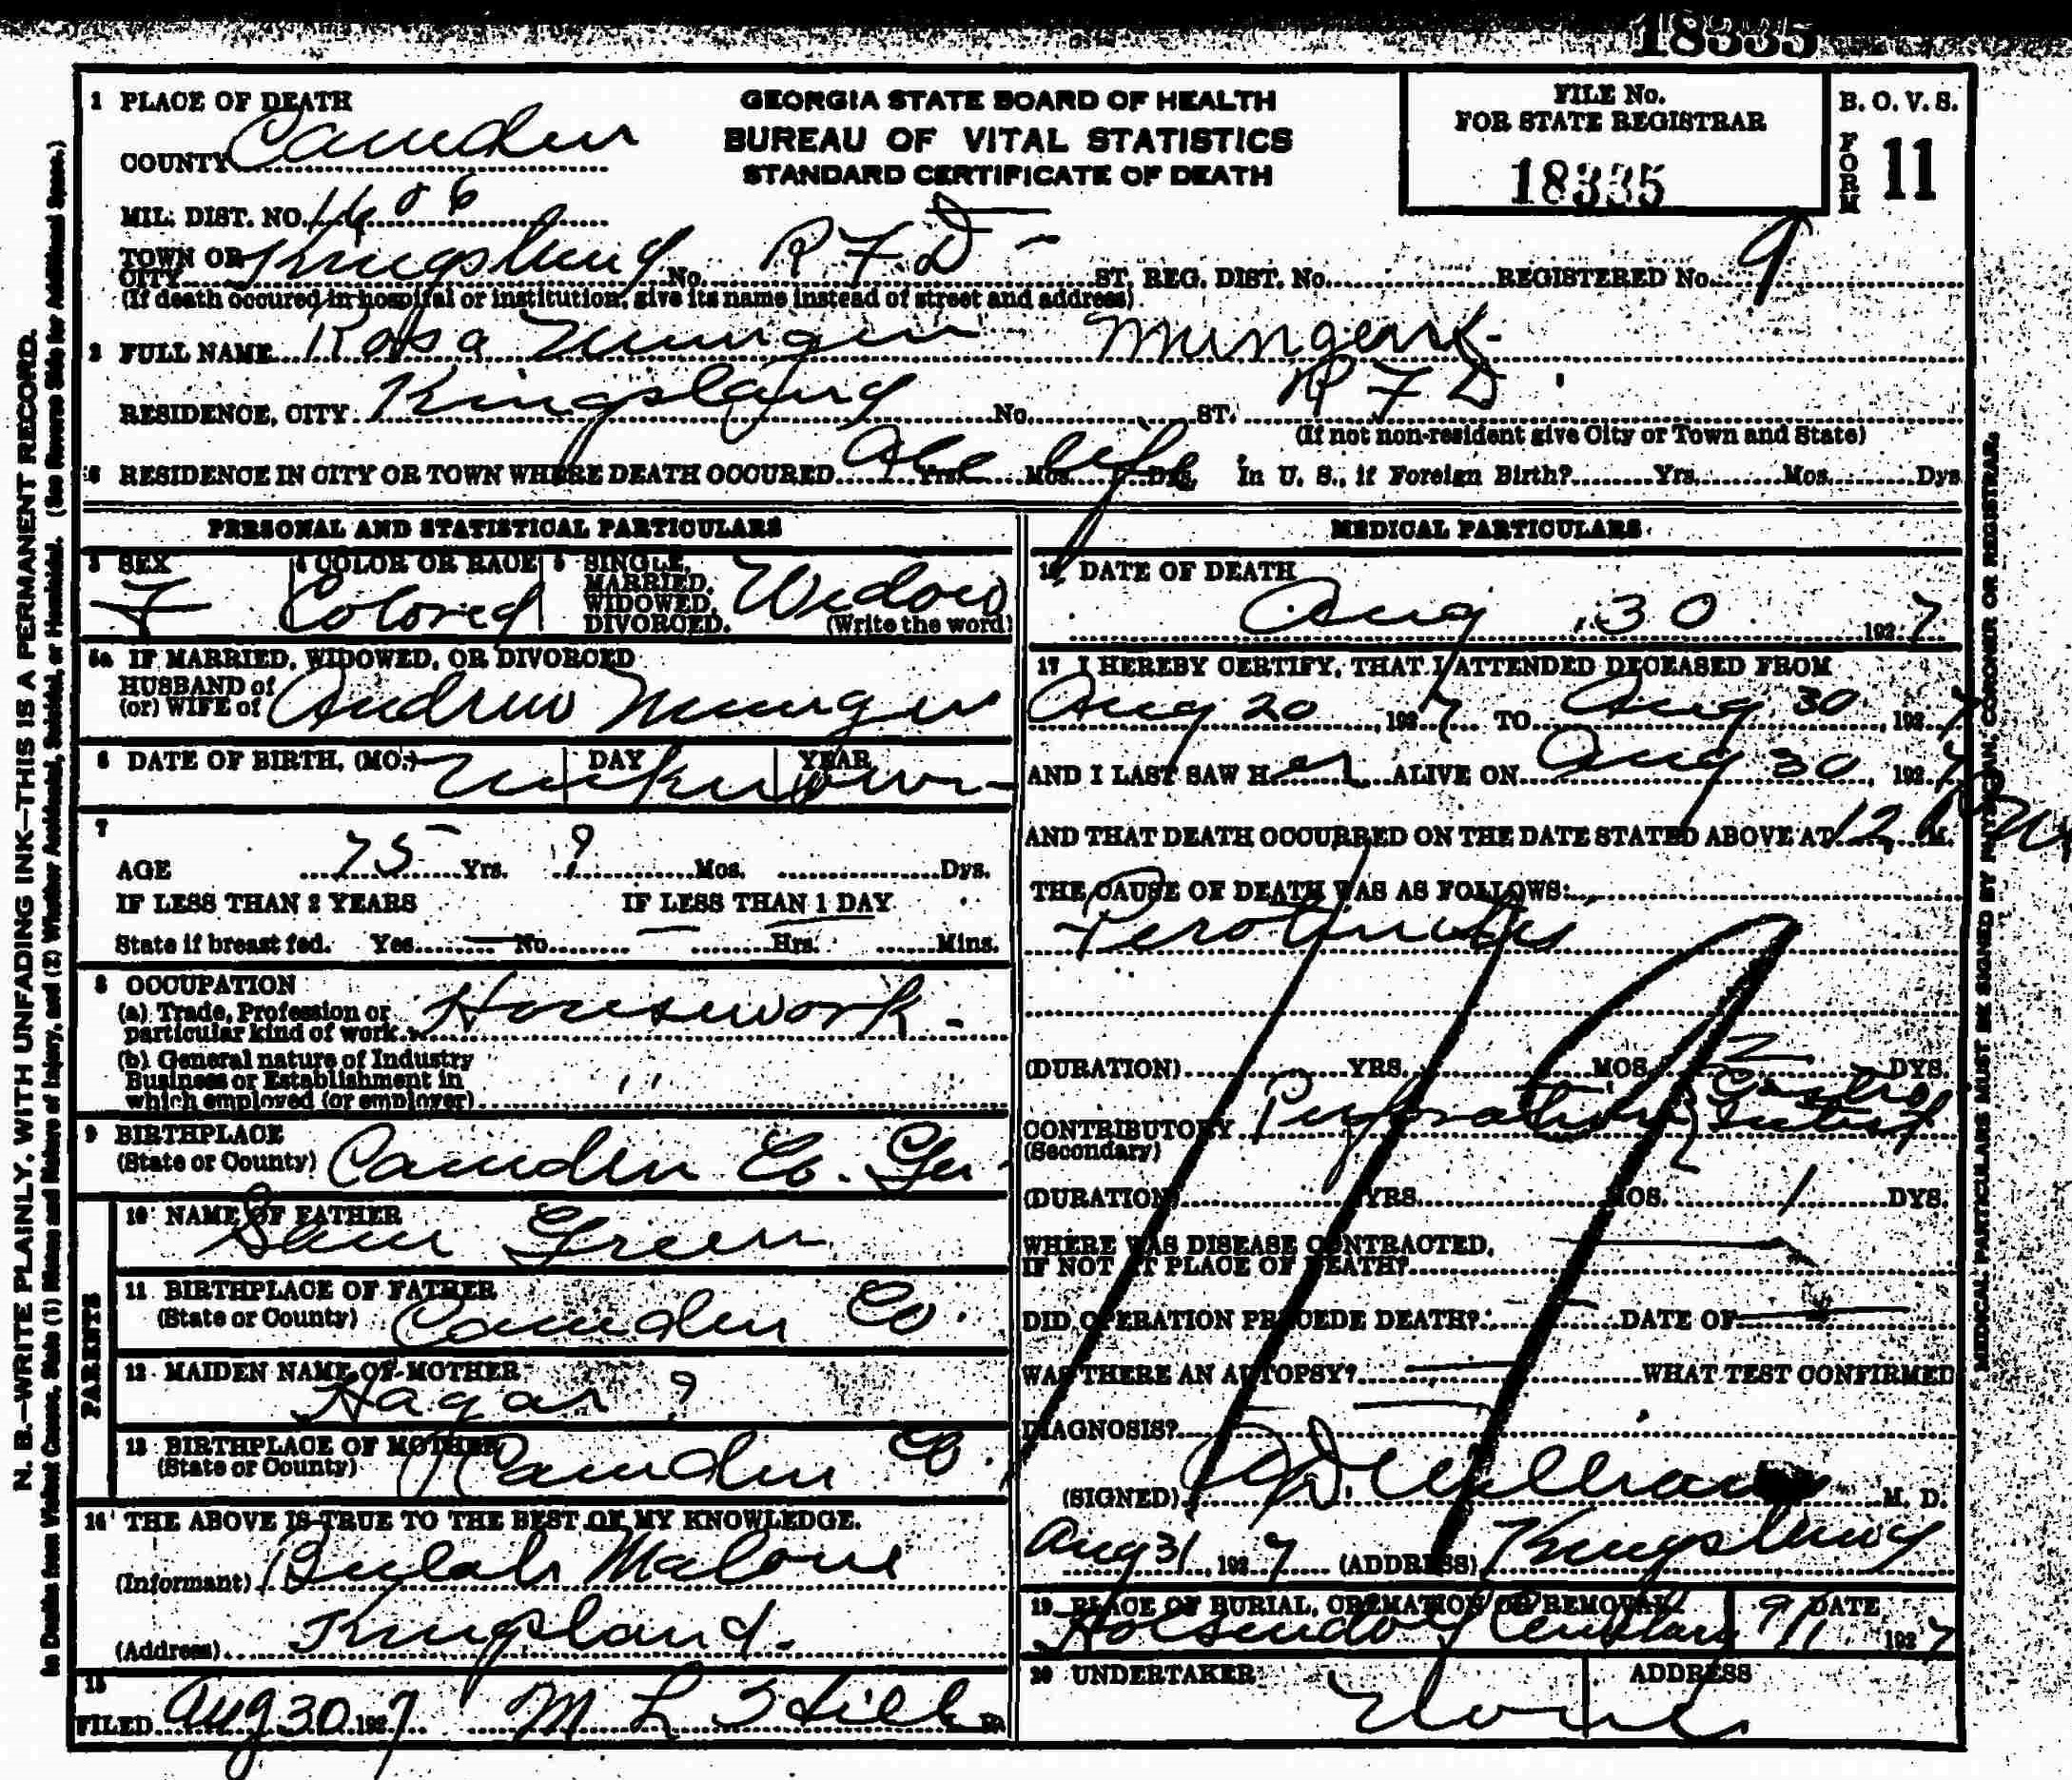 18335
1 PLACE OF DEATH
COUNTY Camden
MIL. DIST. NO. 1606
TOWN OR CITY Kingsland No. R F D ST. REG. DIST. No. REGISTERED No. 9
(If death occured in hospital or institution, give its name instead of street and address)
GEORGIA STATE BOARD OF HEALTH
BUREAU OF VITAL STATISTICS
STANDARD CERTIFICATE OF DEATH
FILE No.
FOR STATE REGISTRAR
18335
B. O. V. S.
FORM 11
2 FULL NAME Rosa Mungin
RESIDENCE, CITY Kingsland No. ST. R F D
(If not non-resident give City or Town and State)
RESIDENCE IN CITY OR TOWN WHERE DEATH OCCURED All life Yrs. Mos. Dys. In U. S., if Foreign Birth? Yrs. Mos. Dys
PERSONAL AND STATISTICAL PARTICULARS
3 SEX F
4 COLOR OR RACE Colored
5 SINGLE, MARRIED, WIDOWED, DIVORCED. Widow
(Write the word)
5a IF MARRIED, WIDOWED, OR DIVORCED
HUSBAND of
(or) WIFE of Andrew Mungin
6 DATE OF BIRTH, (MO.) DAY YEAR Unknown
7
AGE 75 Yrs. ? Mos. Dys.
IF LESS THAN 2 YEARS IF LESS THAN 1 DAY
State if breast fed. Yes No Hrs. Mins.
8 OCCUPATION
(a) Trade, Profession or
particular kind of work Housework
(b) General nature of Industry
Business or Establishment in
which employed (or employer) " "
9 BIRTHPLACE
(State or County) Camden Co. Ga
PARENTS
10 NAME OF FATHER
Sam Green
11 BIRTHPLACE OF FATHER
(State or County) Camden Co.
12 MAIDEN NAME OF MOTHER
Hagar ?
13 BIRTHPLACE OF MOTHER
(State or County) Camden Co.
14 THE ABOVE IS TRUE TO THE BEST OF MY KNOWLEDGE.
(Informant) Beulah Malone
(Address) Kingsland.
15
FILED Aug 30 1927 M L
MEDICAL PARTICULARS
16 DATE OF DEATH
Aug 30 1927
17 I HEREBY CERTIFY, THAT I ATTENDED DECEASED FROM
Aug 20, 1927 TO Aug 30, 1927
AND I LAST SAW Her ALIVE ON Aug 30, 1927
AND THAT DEATH OCCURRED ON THE DATE STATED ABOVE AT 12 M.
THE CAUSE OF DEATH WAS AS FOLLOWS:
(DURATION) YRS. MOS. 2 DYS.
CONTRIBUTORY Perforation Gastro
(Secondary)
(DURATION) YRS. MOS. 1 DYS.
WHERE WAS DISEASE CONTRACTED,
IF NOT AT PLACE OF DEATH?
DID OPERATION PRECEDE DEATH? DATE OF
WAS THERE AN AUTOPSY? WHAT TEST CONFIRMED
DIAGNOSIS?
(SIGNED) D. Williams M. D.
Aug 31, 1927 (ADDRESS) Kingsland
19 PLACE OF BURIAL, CREMATION OR REMOVAL DATE
Holsendorf 9/1 1927
20 UNDERTAKER ADDRESS
None
N. B.—WRITE PLAINLY, WITH UNFADING INK—THIS IS A PERMANENT RECORD.
In Deaths from Violent Causes, State (1) Means and Nature of Injury, and (2) Whether Accidental, Suicidal, or Homicidal. (See Reverse Side for Additional Space.)
MEDICAL PARTICULARS MUST BE SIGNED BY PHYSICIAN, CORONER OR REGISTRAR.